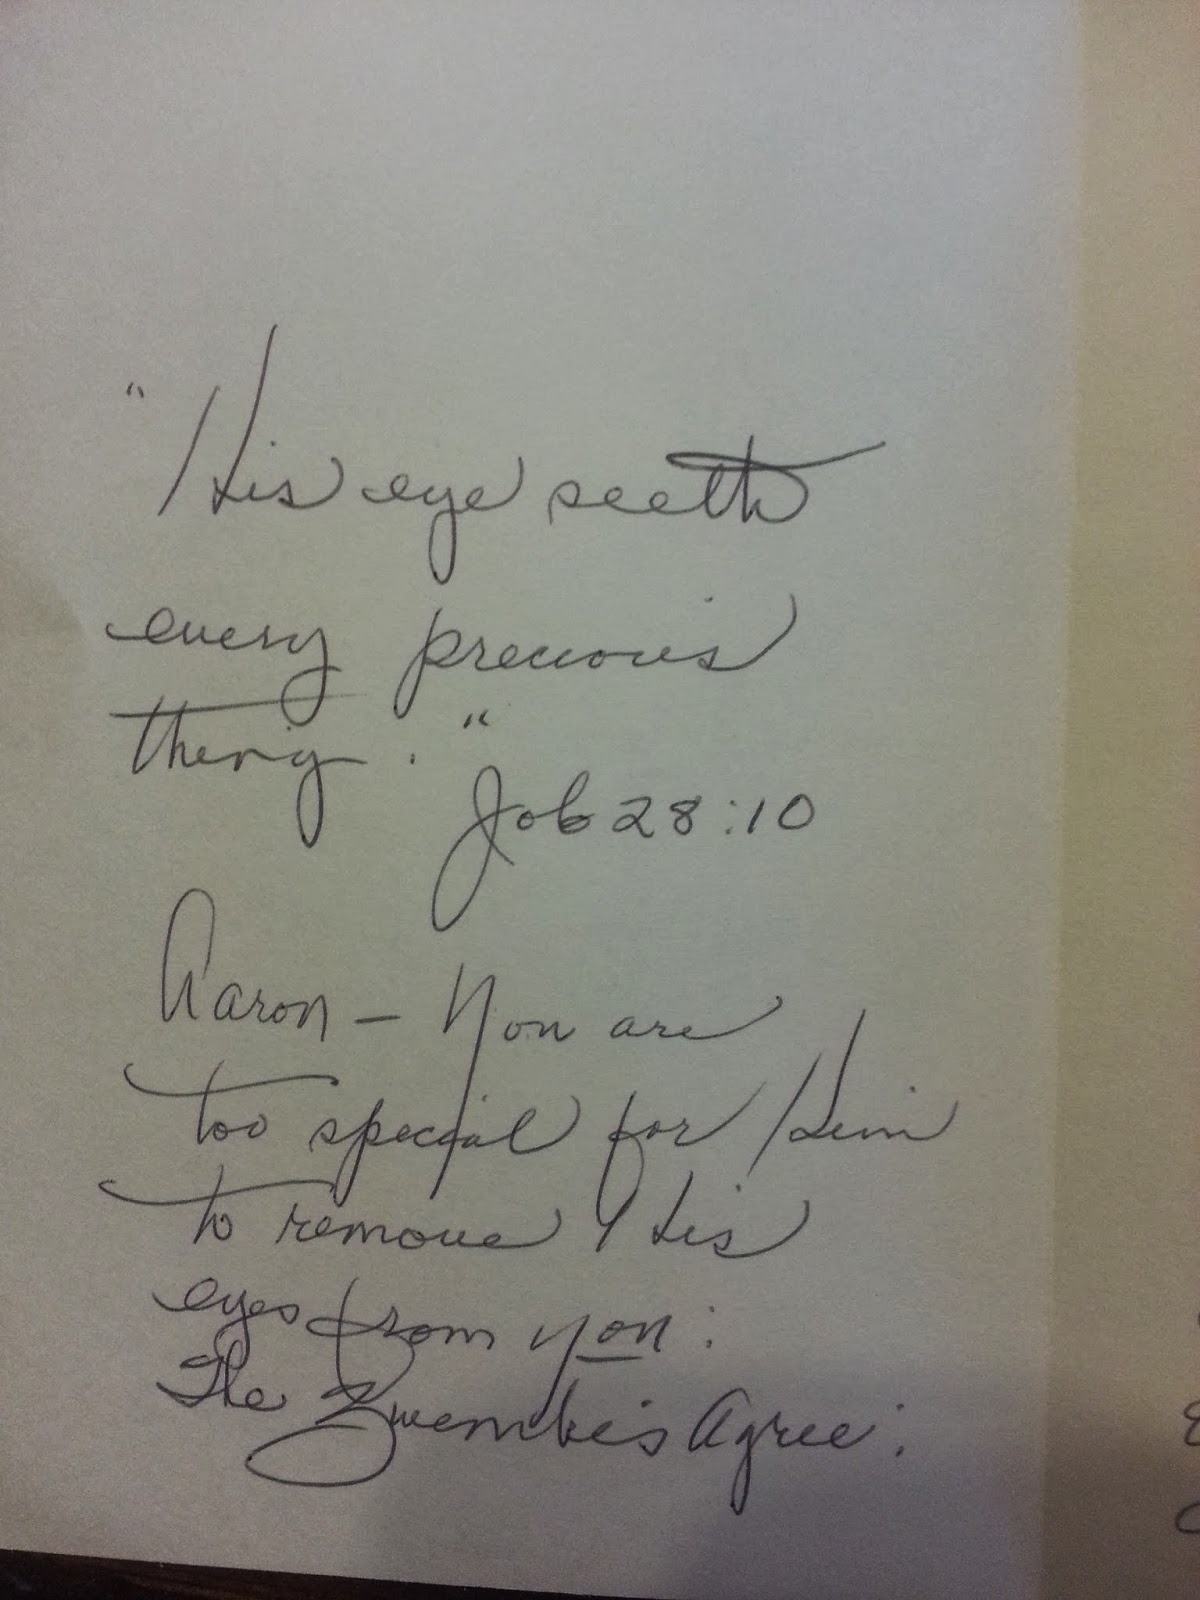 "His eye seeth
every precious
thing."
Job 28:10
Aaron — You are
too special for Him
to remove His
eyes from you:
The Agree: